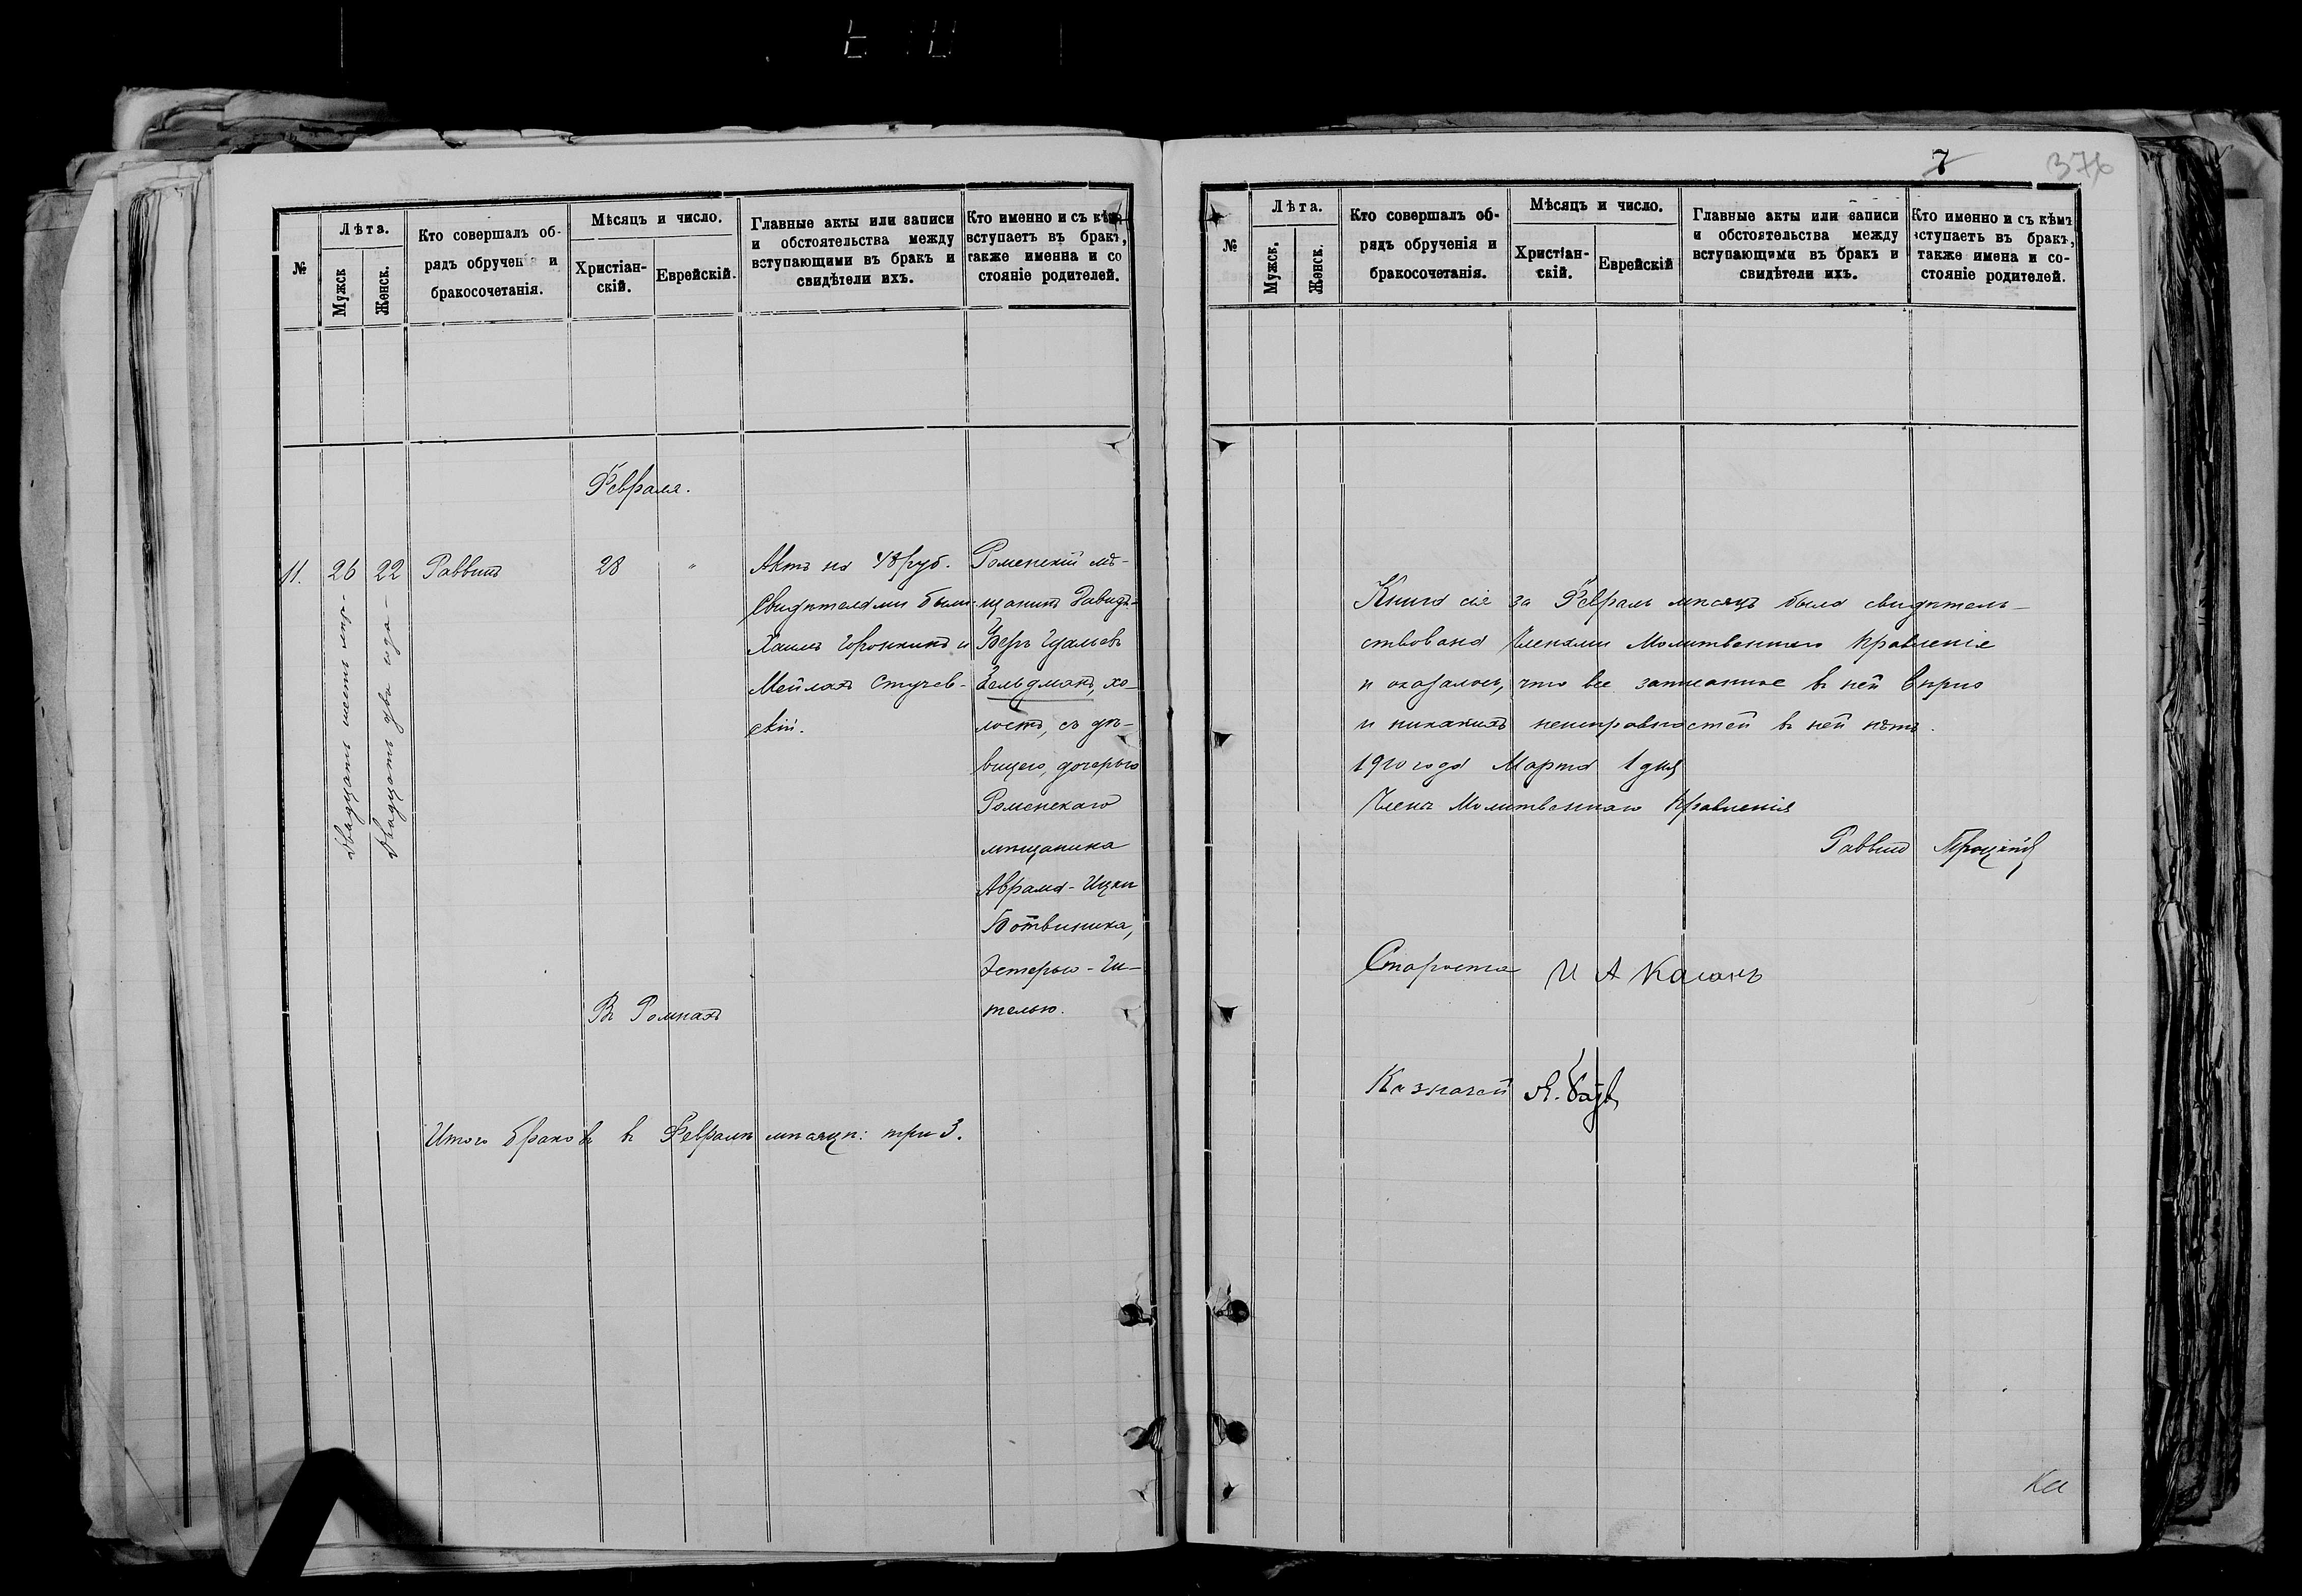 7
376
№
Лѣта.
Мужск
Женск.
Кто совершалъ об-
рядъ обрученія и
бракосочетанія.
Мѣсяцъ и число.
Христіан-
скій.
Еврейскій.
Главные акты или записи
и обстоятельства между
вступающими въ бракъ и
свидѣтели ихъ.
Кто именно и съ кѣмъ
вступаетъ въ бракъ,
также именна и со
стояніе родителей.
Февраля.
11.
26
двадцать шесть лѣт-
22
двадцать два года-
Раввинъ
28
"
Актъ на 48 руб.
Свидѣтелями были
Хаимъ и
Мейлахъ Стучев-
скій.
Роменскій мѣ-
щанинъ Давидъ-
Беръ Гдальевъ
Зельдманъ, хо-
лостъ, съ дѣ-
вицею, дочерью
Роменскаго
мѣщанина
Аврама-Ицки
Ботвиника,
Эстерью-Ги-
телью.
Въ Ромнахъ
Итого браковъ въ Февралѣ мѣсяцѣ: три 3.
№
Лѣта.
Мужск.
Женск.
Кто совершалъ об-
рядъ обрученія и
бракосочетанія.
Мѣсяцъ и число.
Христіан-
скій.
Еврейскій
Главные акты или записи
и обстоятельства между
вступающими въ бракъ и
свидѣтели ихъ.
Кто именно и съ кѣмъ
вступаетъ въ бракъ,
также имена и со-
стояніе родителей.
Книга сія за Февраль мѣсяцъ была свидѣтель-
ствована Членами Молитвеннаго Правленія
и оказалось, что все записанное въ ней вѣрно
и никакихъ неисправностей въ ней нѣтъ.
1910 года Марта 1 дня
Члены Молитвеннаго Правленія
Раввинъ
Староста И А Каганъ
Казначей